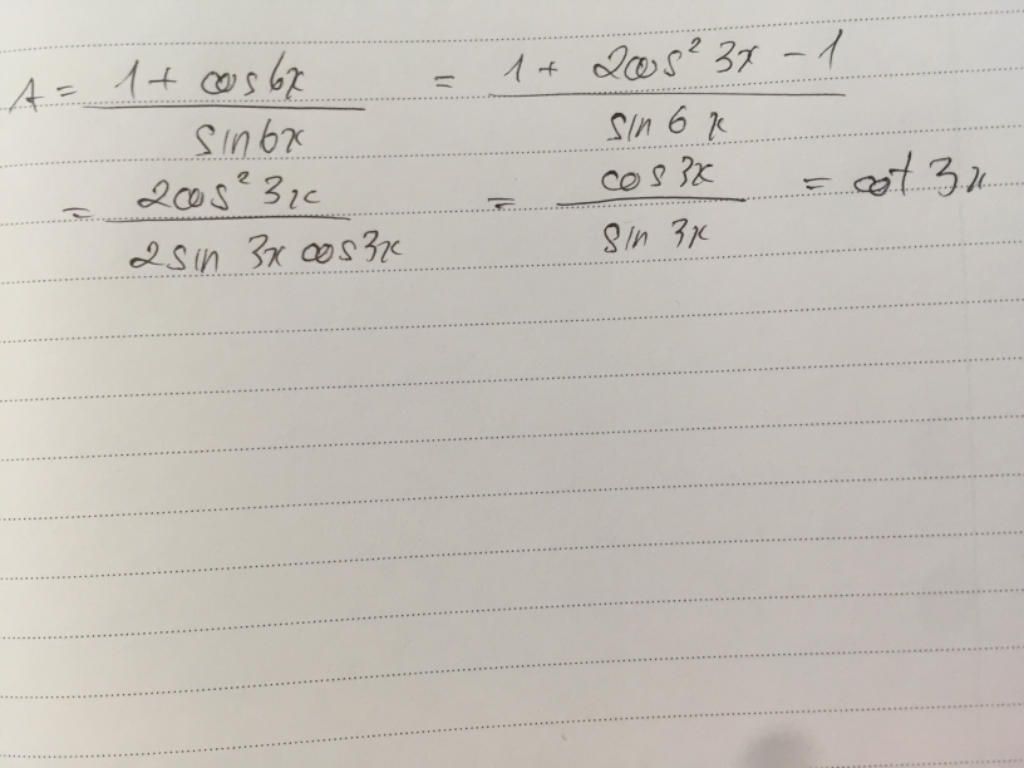 A = \frac{1 + cos6x}{sin6x} = \frac{1 + 2cos² 3x - 1}{sin 6x}
= \frac{2cos² 3x}{2sin 3x cos3x} = \frac{cos 3x}{sin 3x} = cot 3x